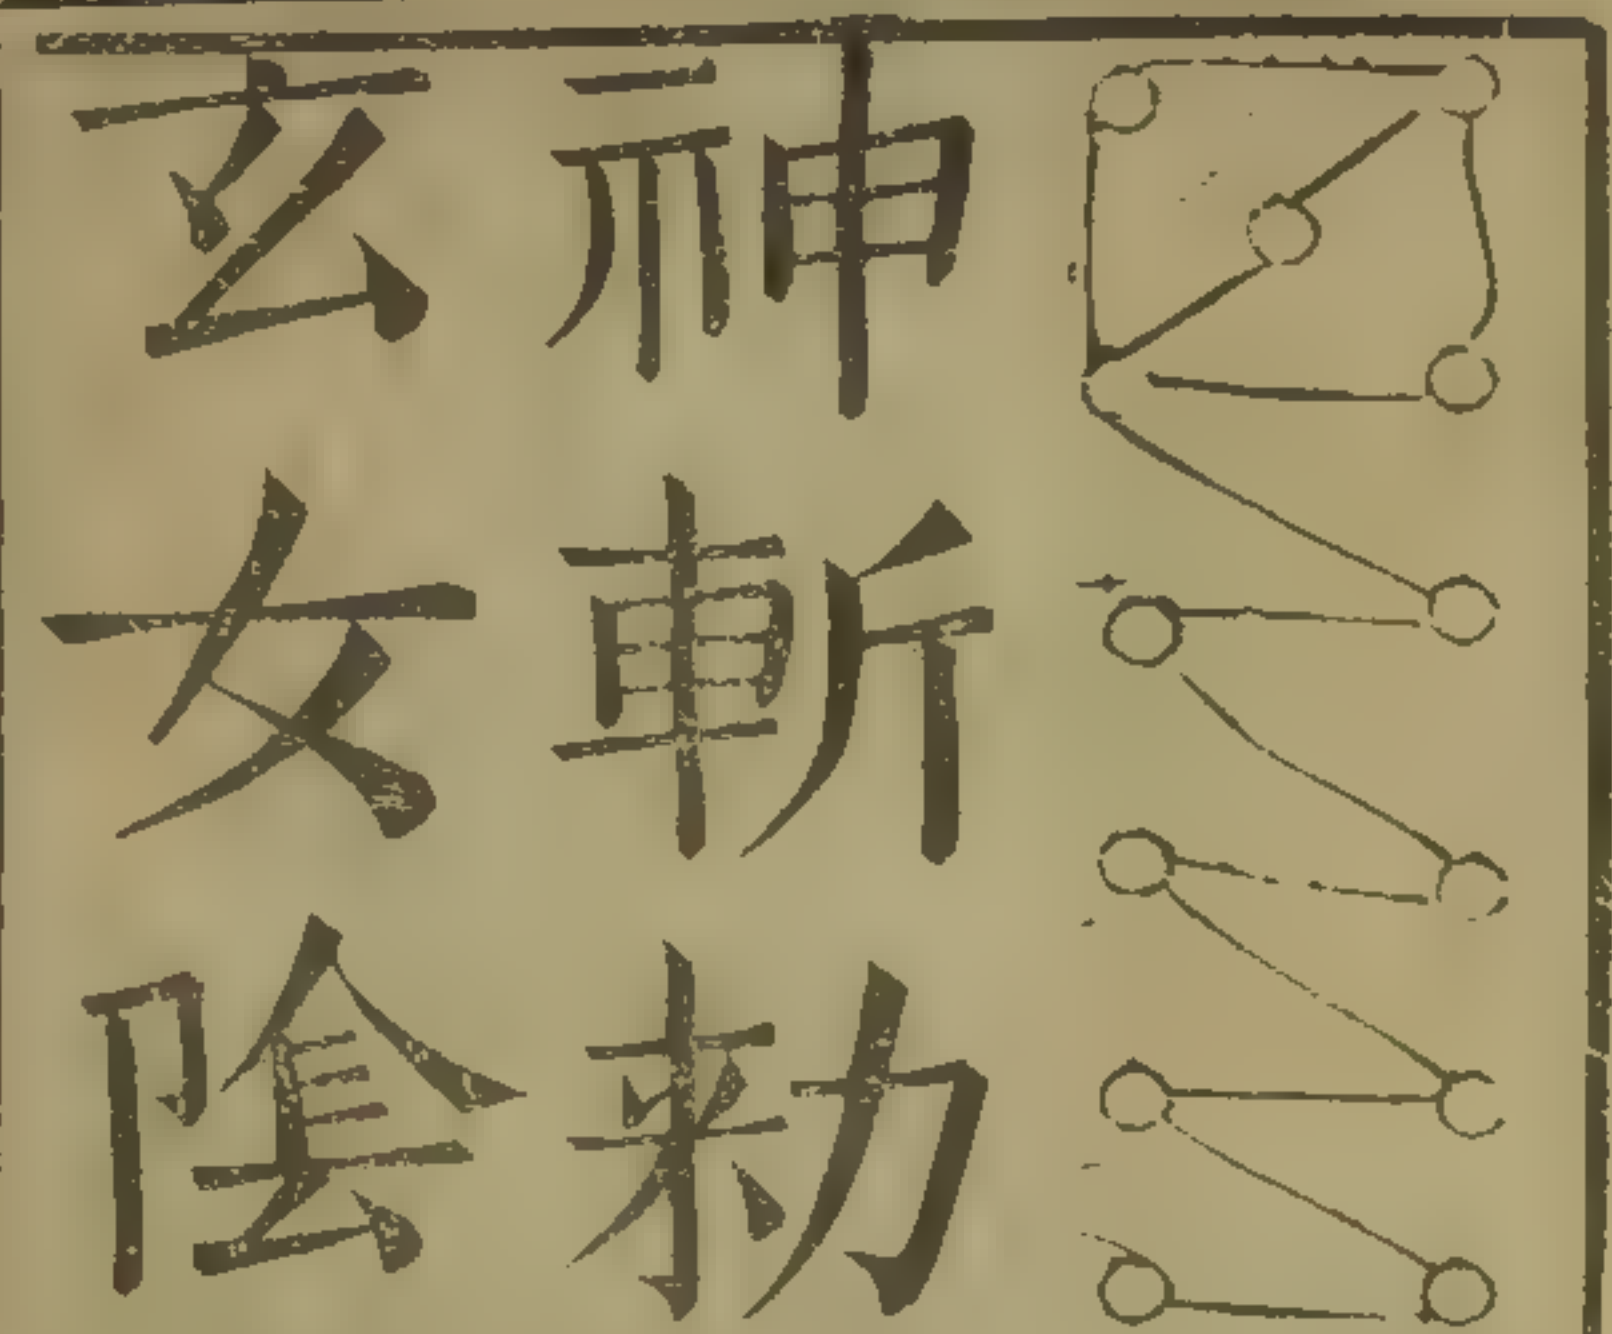 神斬勑
玄女陰